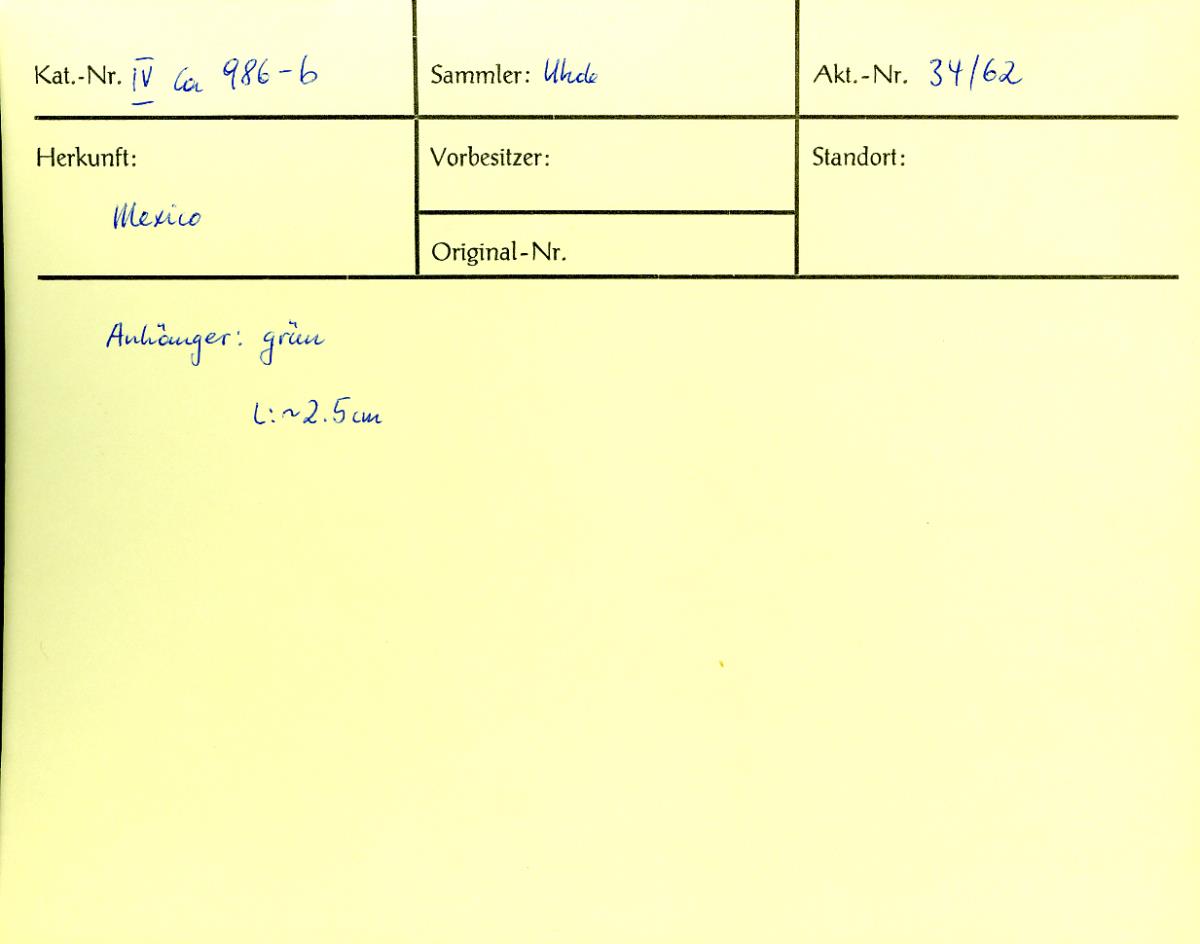 Kat.-Nr. IV Ca 986-b
Sammler: Uhde
Akt.-Nr. 34/62
Herkunft:
Mexico
Vorbesitzer:
Original-Nr.
Standort:
Anhänger: grün
L: ~2.5cm